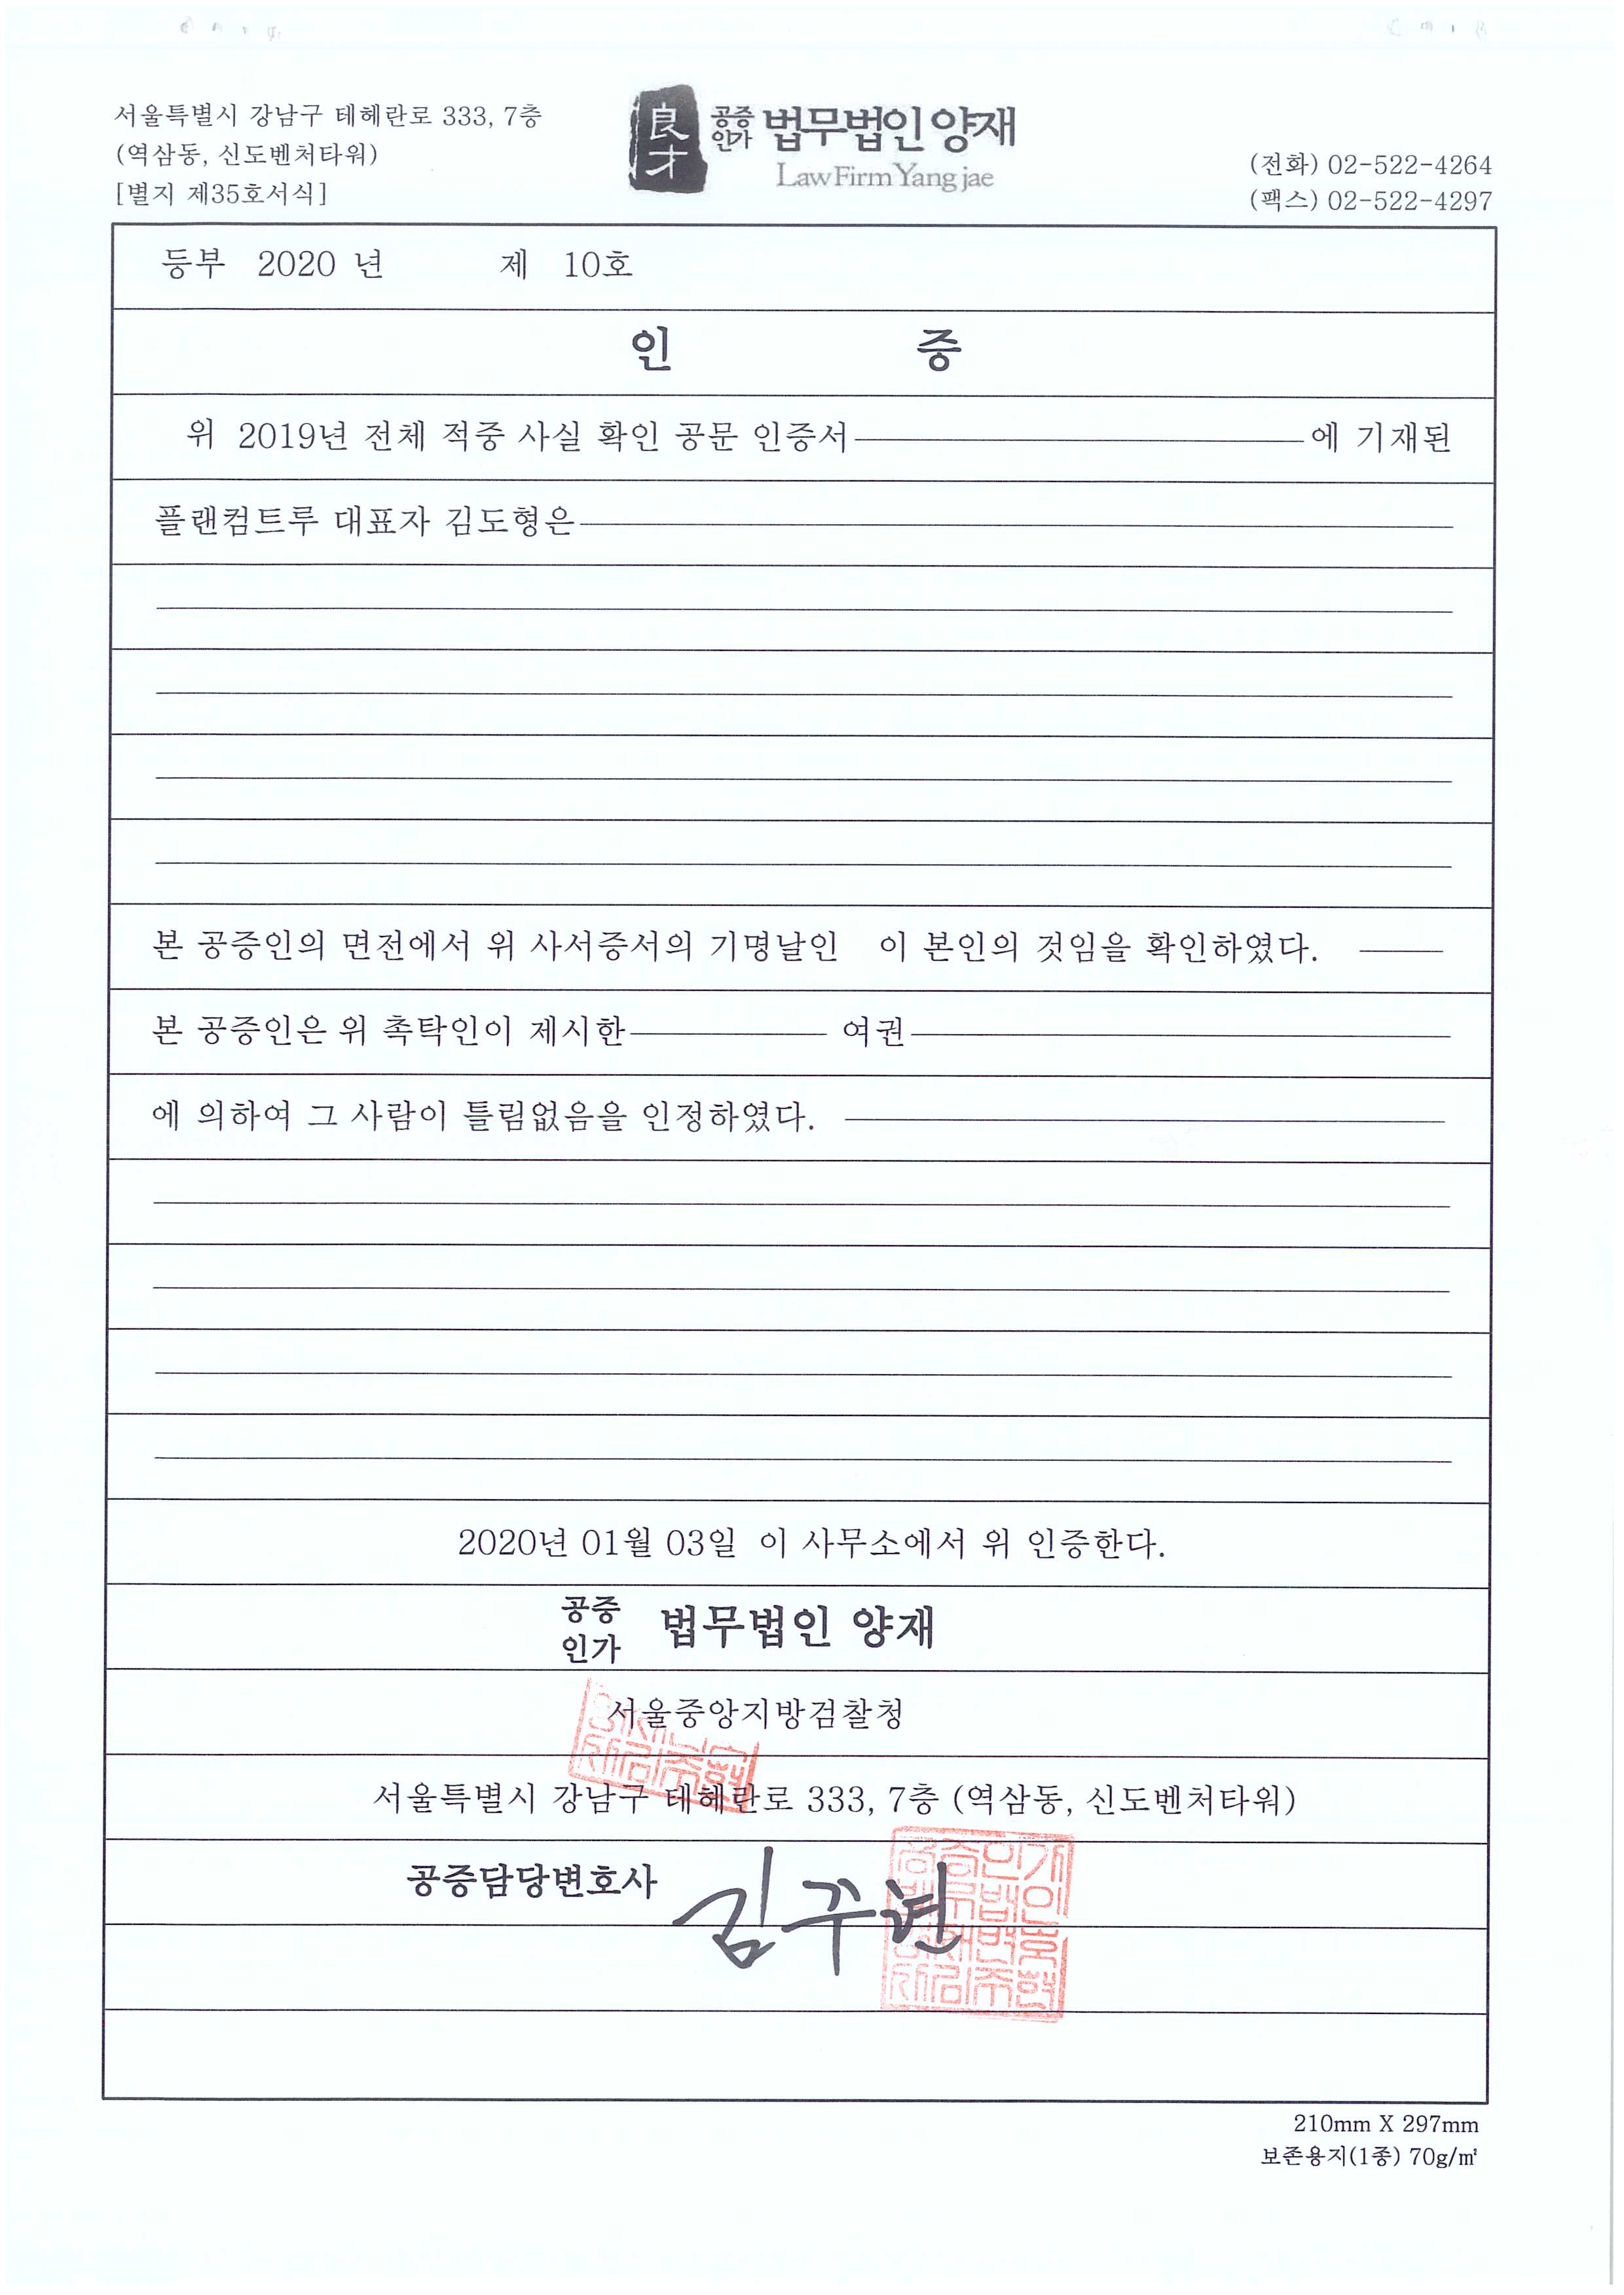 서울특별시 강남구 테헤란로 333, 7층
(역삼동, 신도벤처타워)
[별지 제35호서식]
良才
공증
인가
법무법인 양재
Law Firm Yang jae
(전화) 02-522-4264
(팩스) 02-522-4297
등부 2020 년 제 10호
인 증
위 2019년 전체 적중 사실 확인 공문 인증서 에 기재된
플랜컴트루 대표자 김도형은
본 공증인의 면전에서 위 사서증서의 기명날인 이 본인의 것임을 확인하였다.
본 공증인은 위 촉탁인이 제시한 여권
에 의하여 그 사람이 틀림없음을 인정하였다.
2020년 01월 03일 이 사무소에서 위 인증한다.
공증
인가
법무법인 양재
서울중앙지방검찰청
서울특별시 강남구 테헤란로 333, 7층 (역삼동, 신도벤처타워)
공증담당변호사
210mm X 297mm
보존용지(1종) 70g/㎡